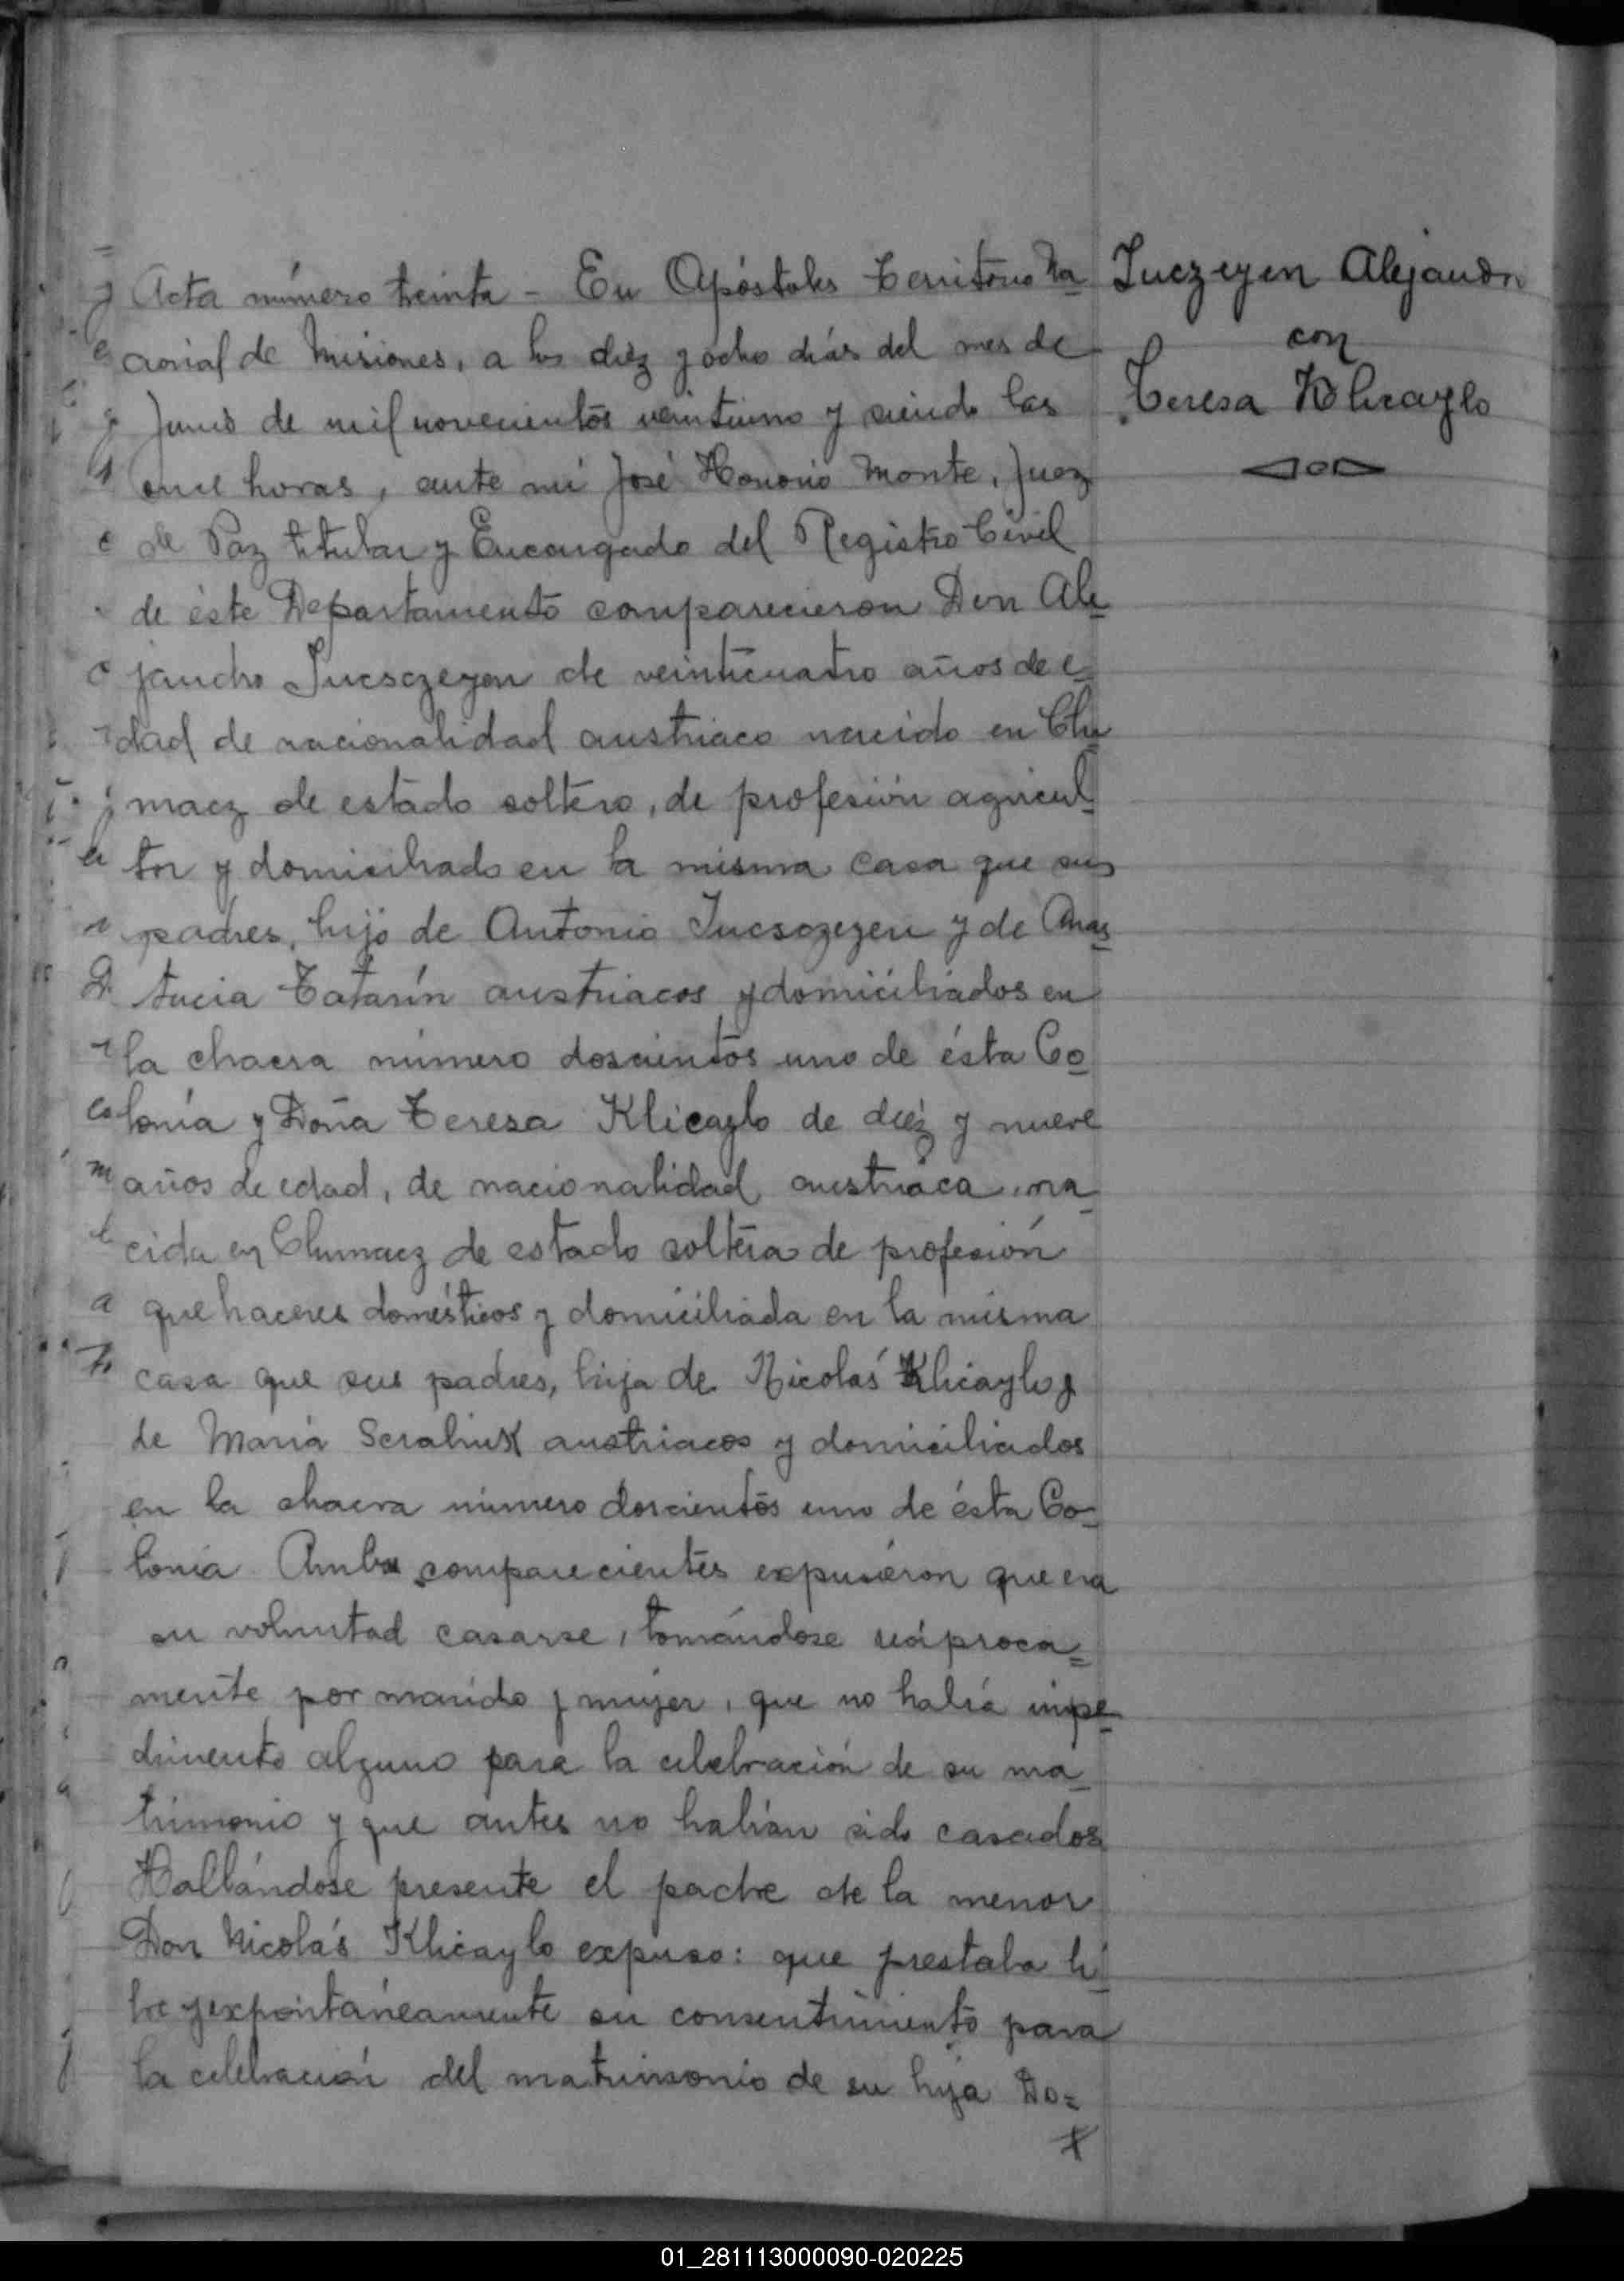 Juczeyen Alejandro
con
Teresa Klhcaylo
Acta número treinta - En Apóstoles Territorio Na
cional de Misiones, a los diéz y ocho días del mes de
Junio de mil novecientos veintiuno y siendo las
once horas, ante mi José Honorio Monte, Juez
de Paz titular y Encargado del Registro Civil
de éste Departamento comparecieron Don Ale
jandro Jucsczeyen de veinticuatro años de e
dad de nacionalidad austriaco nacido en Chu
macz de estado soltero, de profesión agricul
tor y domiciliado en la misma casa que sus
padres, hijo de Antonio Jucsczezen y de Anas
tacia Tatarín austriacos y domiciliados en
la chacra número doscientos uno de ésta Co
lonia y Doña Teresa Klicaylo de diéz y nueve
años de edad, de nacionalidad austriaca, na
cida en Chumacz de estado soltera de profesión
que haceres domésticos y domiciliada en la misma
casa que sus padres, hija de Nicolás Klicaylo y
de María Scraliuk austriacos y domiciliados
en la chacra número doscientos uno de ésta Co-
lonia Ambos comparecientes expusieron que era
su voluntad casarse, tomándose recíproca=
mente por marido y mujer, que no había impe
dimento alguno para la celebración de su ma
trimonio y que antes no habían sido casados
Hallándose presente el padre de la menor
Don Nicolás Klicaylo expuso: que prestaba li
bre y expontáneamente su consentimiento para
la celebración del matrimonio de su hija Do=
01_281113000090-020225